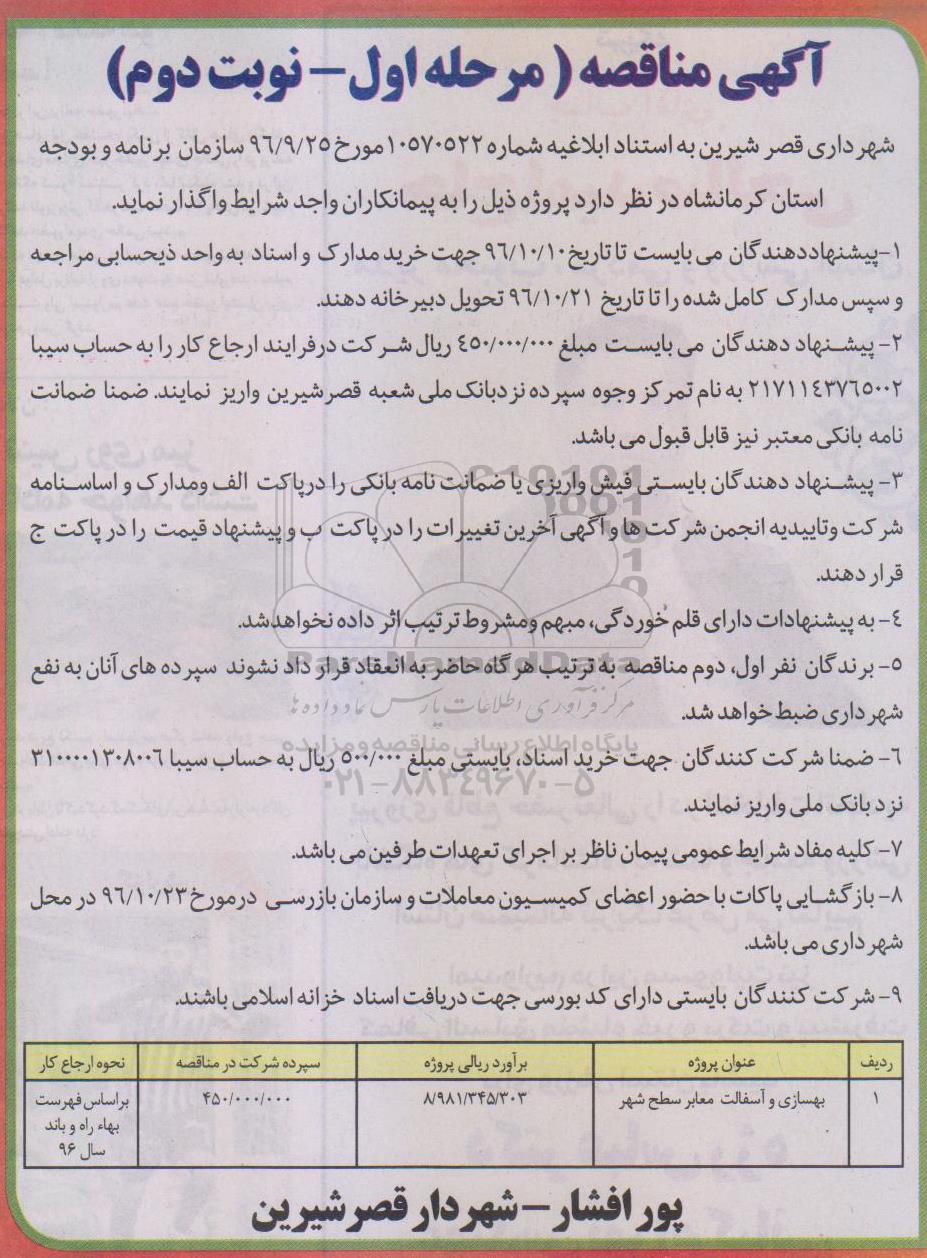 آگهی مناقصه ( مرحله اول – نوبت دوم)
شهرداری قصر شیرین به استناد ابلاغیه شماره ۱۰۵۷۰۵۲۲ مورخ ۹۶/۹/۲۵ سازمان برنامه و بودجه
استان کرمانشاه در نظر دارد پروژه ذیل را به پیمانکاران واجد شرایط واگذار نماید.
۱- پیشنهاددهندگان می بایست تا تاریخ ۹۶/۱۰/۱۰ جهت خرید مدارک و اسناد به واحد ذیحسابی مراجعه
و سپس مدارک کامل شده را تا تاریخ ۹۶/۱۰/۲۱ تحویل دبیرخانه دهند.
۲- پیشنهاد دهندگان می بایست مبلغ ۴۵۰/۰۰۰/۰۰۰ ریال شرکت درفرایند ارجاع کار را به حساب سیبا
۲۱۷۱۱۴۳۷۶۵۰۰۲ به نام تمرکز وجوه سپرده نزدبانک ملی شعبه قصرشیرین واریز نمایند. ضمنا ضمانت
نامه بانکی معتبر نیز قابل قبول می باشد.
۳- پیشنهاد دهندگان بایستی فیش واریزی یا ضمانت نامه بانکی را درپاکت الف ومدارک و اساسنامه
شرکت وتاییدیه انجمن شرکت ها و آگهی آخرین تغییرات را در پاکت ب و پیشنهاد قیمت را در پاکت ج
قرار دهند.
۴- به پیشنهادات دارای قلم خوردگی، مبهم ومشروط ترتیب اثر داده نخواهدشد.
۵- برندگان نفر اول، دوم مناقصه به ترتیب هرگاه حاضر به انعقاد قرار داد نشوند سپرده های آنان به نفع
شهرداری ضبط خواهد شد.
۶- ضمنا شرکت کنندگان جهت خرید اسناد، بایستی مبلغ ۵۰۰/۰۰۰ ریال به حساب سیبا ۳۱۰۰۰۰۱۳۰۸۰۰۶
نزد بانک ملی واریز نمایند.
۷- کلیه مفاد شرایط عمومی پیمان ناظر بر اجرای تعهدات طرفین می باشد.
۸- بازگشایی پاکات با حضور اعضای کمیسیون معاملات و سازمان بازرسی درمورخ ۹۶/۱۰/۲۳ در محل
شهرداری می باشد.
۹- شرکت کنندگان بایستی دارای کد بورسی جهت دریافت اسناد خزانه اسلامی باشند.
ردیف عنوان پروژه برآورد ریالی پروژه سپرده شرکت در مناقصه نحوه ارجاع کار
۱ بهسازی و آسفالت معابر سطح شهر ۸/۹۸۱/۳۴۵/۳۰۳ ۴۵۰/۰۰۰/۰۰۰ براساس فهرست
بهاء راه و باند
سال ۹۶
پور افشار – شهردار قصرشیرین
ParsNamadData
مرکز فرآوری اطلاعات پارس نماد داده ها
پایگاه اطلاع رسانی مناقصه و مزایده
۰۲۱-۸۸۳۴۹۶۷۰-۵